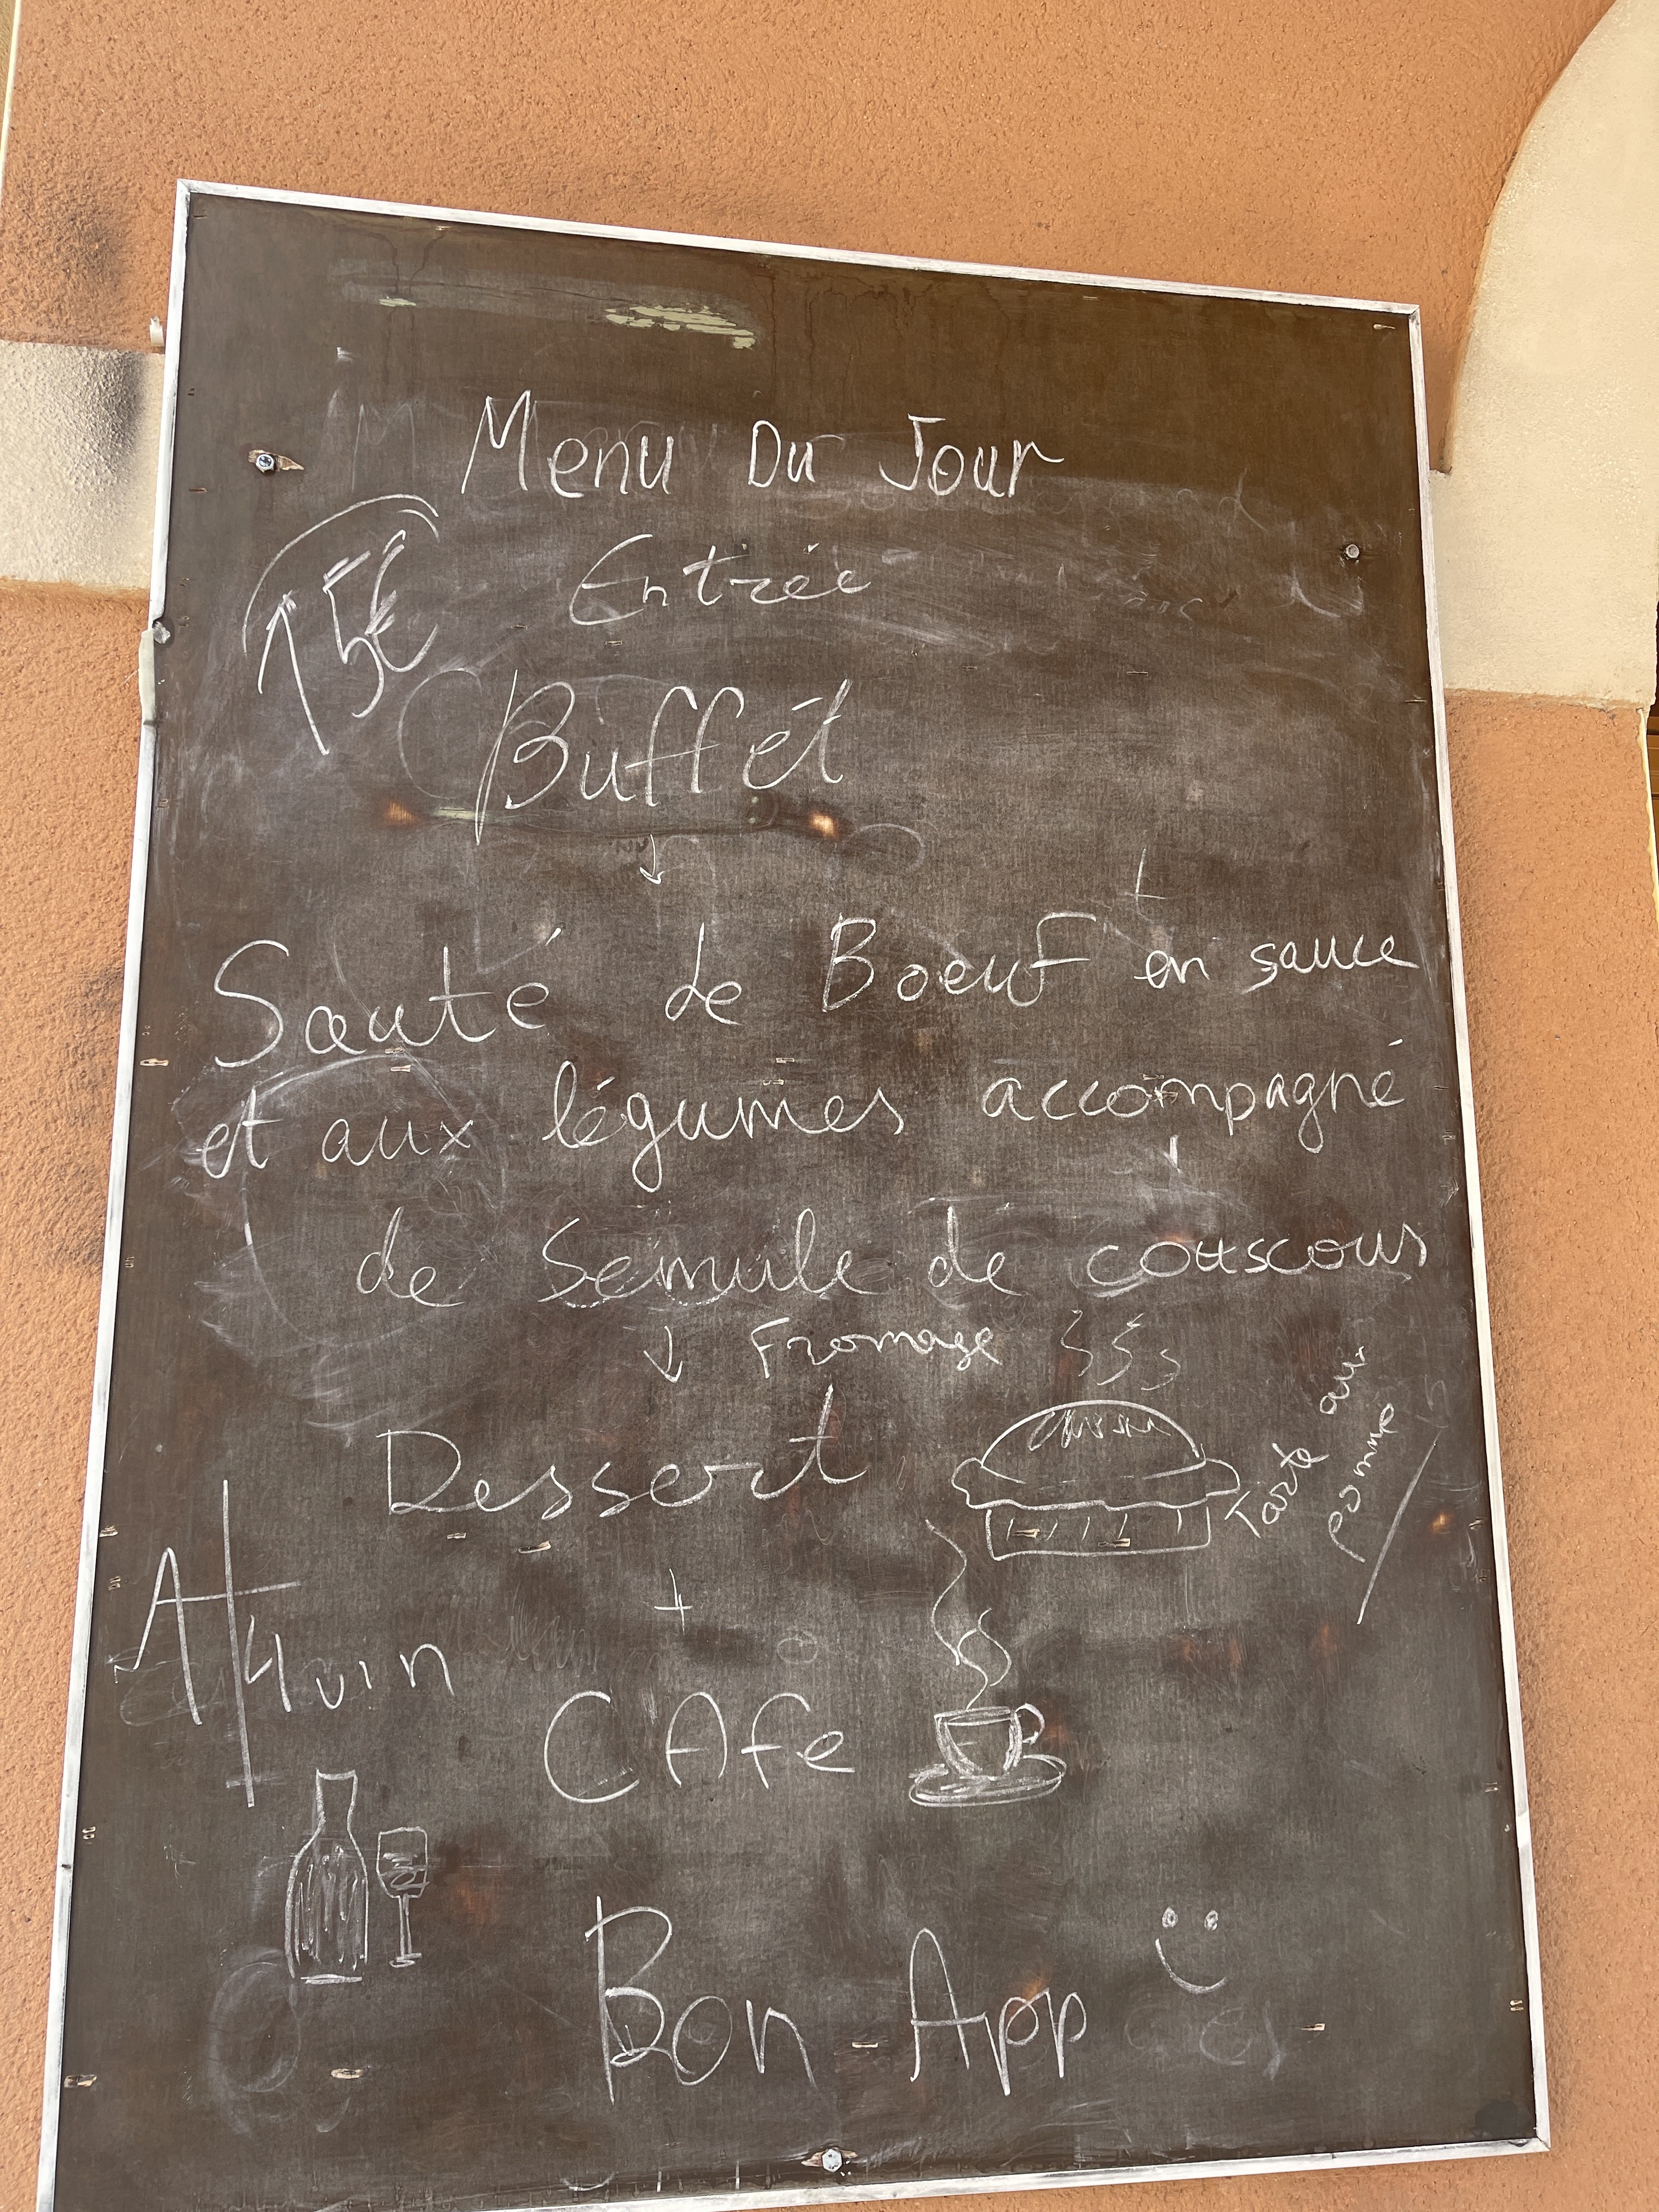 Menu Du Jour
15€
Entrée
Buffét
Sauté de Boeuf en sauce
et aux légumes accompagné
de Semule de couscous
Fromage
Dessert
Tarte aux
pomme
+
1/4 vin
CAfe
Bon App